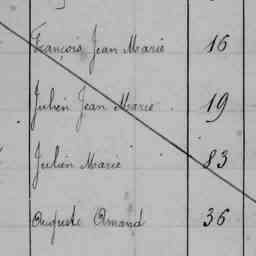 François Jean Marie 16
Julien Jean Marie 19
Julien Marie 83
Auguste Amand 36